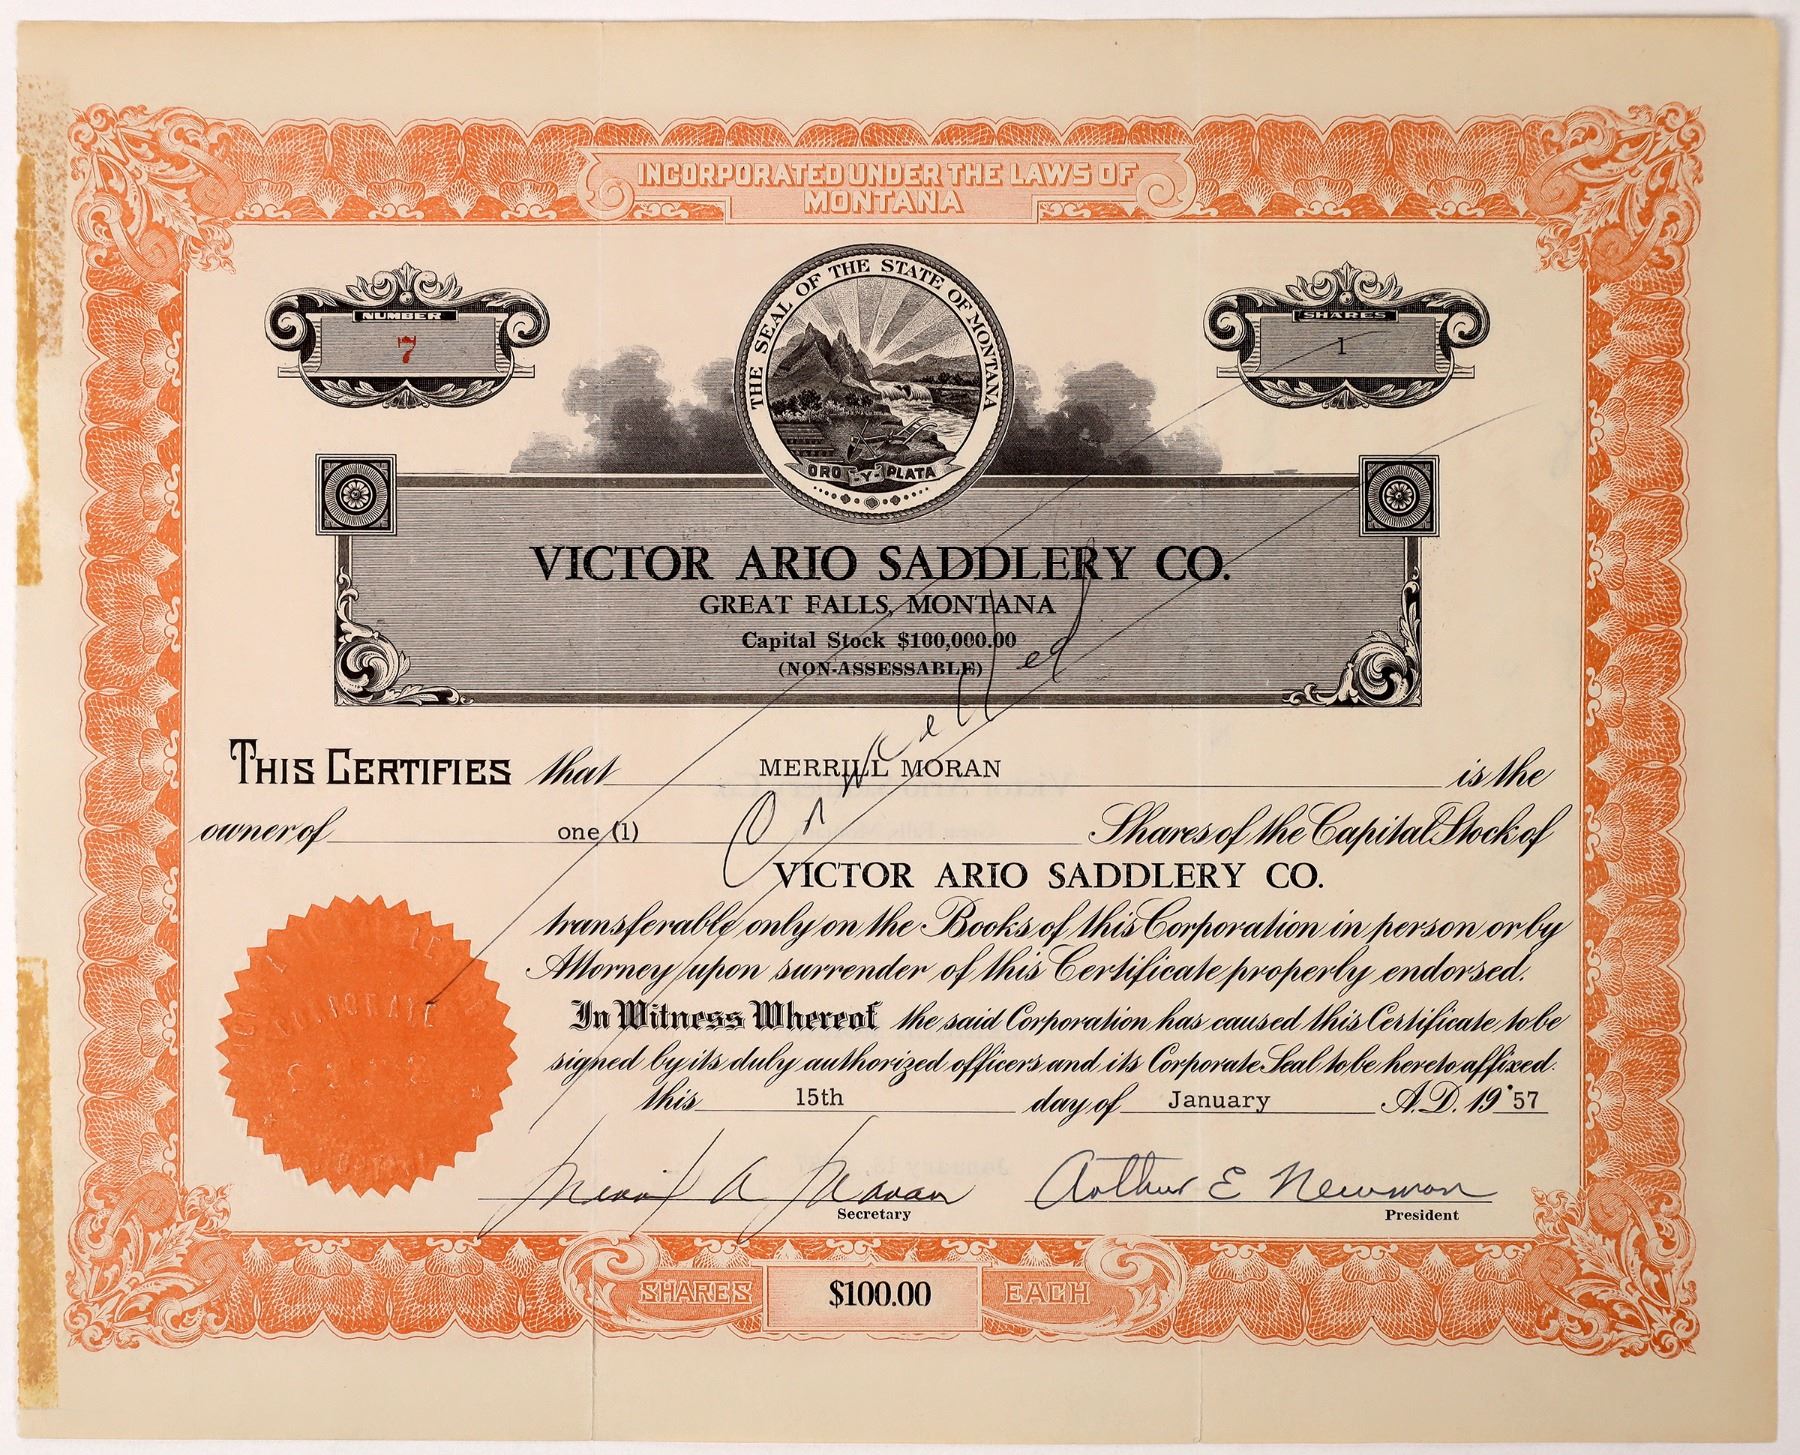 INCORPORATED UNDER THE LAWS OF
MONTANA
NUMBER
7
THE SEAL OF THE STATE OF MONTANA
ORO-Y-PLATA
SHARES
1
VICTOR ARIO SADDLERY CO.
GREAT FALLS, MONTANA
Capital Stock $100,000.00
(NON-ASSESSABLE)
Cancelled
THIS CERTIFIES that MERRILL MORAN is the
owner of one (1) Shares of the Capital Stock of
VICTOR ARIO SADDLERY CO.
transferable only on the Books of this Corporation in person or by
Attorney upon surrender of this Certificate properly endorsed.
In Witness Whereof the said Corporation has caused this Certificate to be
signed by its duly authorized officers and its Corporate Seal to be hereto affixed.
this 15th day of January A.D. 19'57
Merrill A Moran Arthur E Newman
Secretary President
SHARES $100.00 EACH